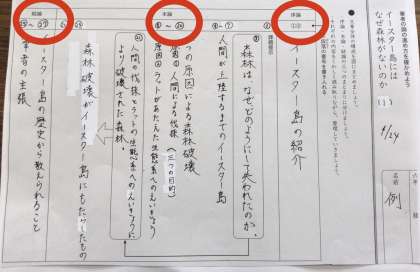 筆者の論の進め方を確かめよう
イースター島には
なぜ森林がないのか
(1)
4/24
名前
例
序論
①
イースター島の紹介
森林は、なぜどのようにして失われたのか。
本論
人間が上陸するまでのイースター島
つの原因による森林破壊
原因① 人間による伐採(三つの目的)
原因② ラットがあたえた生態系へのえいきょう
人間の伐採とラットの生態系へのえいきょうに
より破壊された森林。
森林破壊がイースター島にもたらしたもの
結論
イースター島の歴史から教えられること
筆者の主張